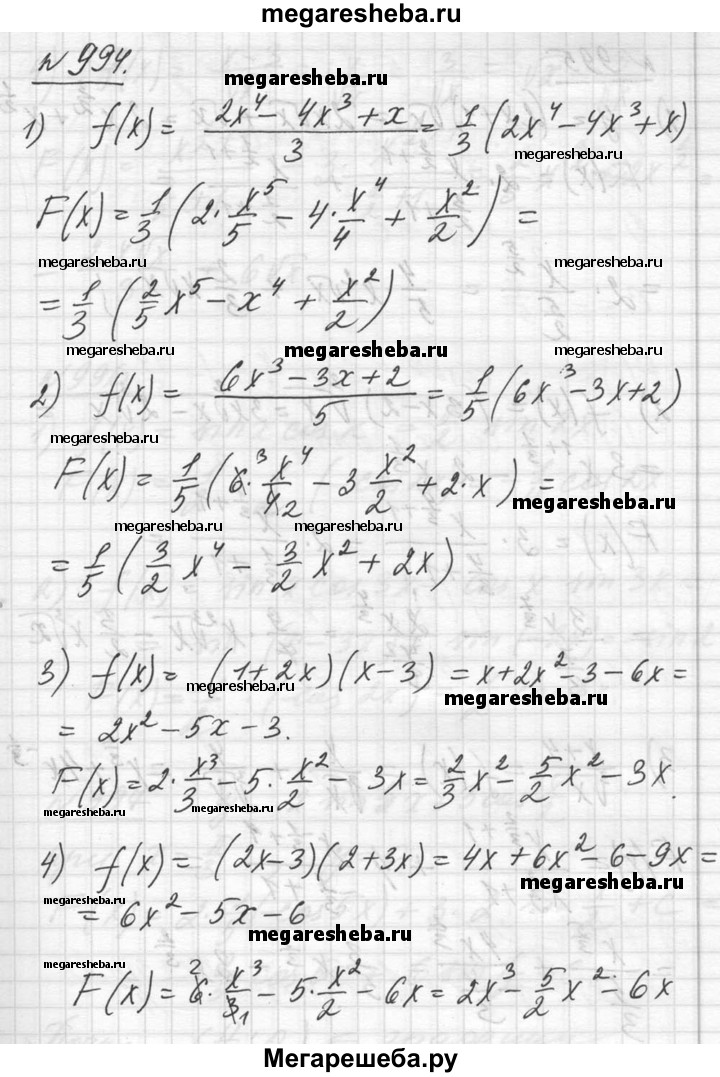 megaresheba.ru
№994.
megaresheba.ru
1) f(x) = (2x⁴ − 4x³ + x)/3 = 1/3 (2x⁴ − 4x³ + x)
megaresheba.ru
F(x) = 1/3 (2·x⁵/5 − 4·x⁴/4 + x²/2) =
megaresheba.ru megaresheba.ru megaresheba.ru
= 1/3 (2/5 x⁵ − x⁴ + x²/2)
megaresheba.ru megaresheba.ru
megaresheba.ru
2) f(x) = (6x³ − 3x + 2)/5 = 1/5 (6x³ − 3x + 2)
megaresheba.ru
F(x) = 1/5 (6·³ x⁴/4₂ − 3 x²/2 + 2·x) =
megaresheba.ru
megaresheba.ru megaresheba.ru
= 1/5 (3/2 x⁴ − 3/2 x² + 2x)
3) f(x) = (1+2x)(x−3) = x+2x²−3−6x =
megaresheba.ru megaresheba.ru
= 2x² − 5x − 3.
F(x) = 2·x³/3 − 5·x²/2 − 3x = 2/3 x² − 5/2 x² − 3x.
megaresheba.ru megaresheba.ru
4) f(x) = (2x−3)(2+3x) = 4x + 6x² − 6 − 9x =
megaresheba.ru
megaresheba.ru
= 6x² − 5x − 6
megaresheba.ru
megaresheba.ru
F(x) = ²6·x³/3₁ − 5·x²/2 − 6x = 2x³ − 5/2 x² − 6x
Мегарешеба.ру